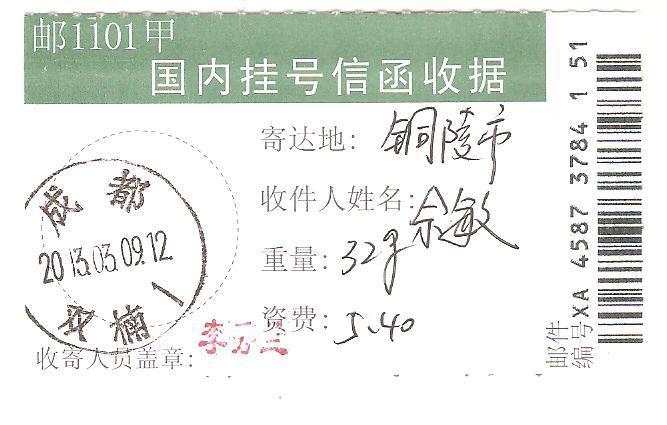 邮1101甲
国内挂号信函收据
寄达地: 铜陵市
收件人姓名: 余敏
重量: 32g
资费: 5.40
收寄人员盖章:
成都
2013.03.09.12
邮件
编号XA 4587 3784 1 51